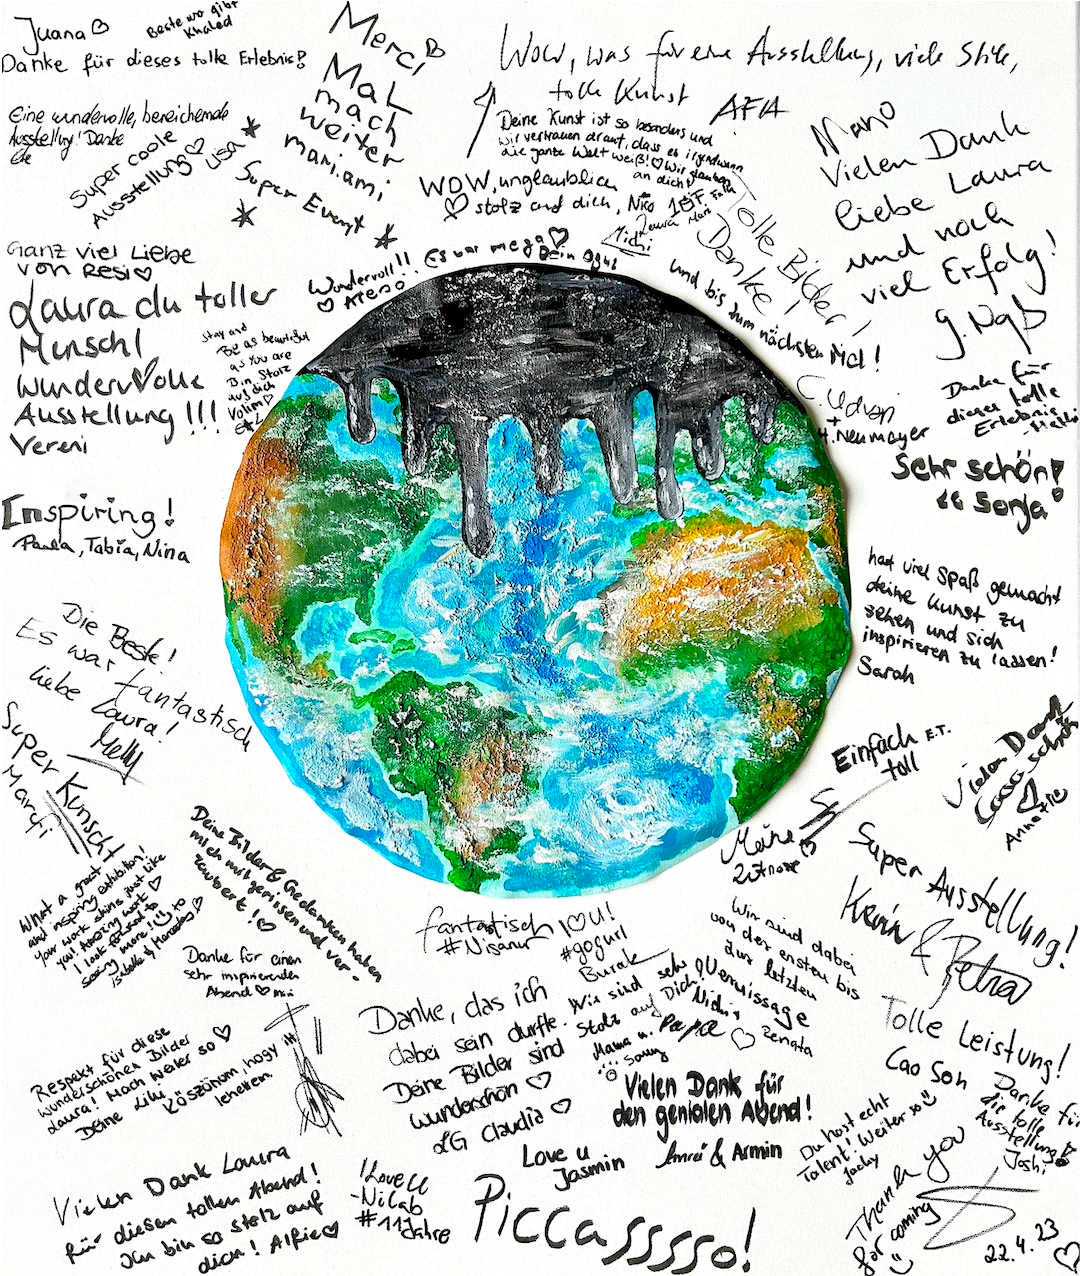 Juana
Danke für dieses tolle Erlebnis!
Beste wo gibt
Khaled
Eine wundervolle, bereichernde
Ausstellung! Danke
Super coole
Ausstellung
Lisa
Merci
Mal
mach
weiter
mami.ami
Super Event
Wow, was für eine Ausstellung, viele Stile,
tolle Kunst
AFIA
Deine Kunst ist so besonders und
wir vertrauen drauf, dass es irgendwann
die ganze Welt weiß! Wir glauben
an dich!
WOW, unglaublich
stolz auf dich, Nico
Michi
Nano
Vielen Dank
liebe Laura
und noch
viel Erfolg!
Tolle Bilder!
Danke
und bis zum nächsten Mal!
+ H. Neumayer
Ganz viel Liebe
von Resi
Laura du toller
Mensch!
Wundervolle
Ausstellung!!!
Vereni
Wundervoll!!
Es war mega
Stay and
Be as beautiful
as you are
Bin Stolz
auf dich
Danke für
diese tolle
Erlebnis
Sehr schön!
Sonja
Inspiring!
Paula, Tabia, Nina
hat viel Spaß gemacht
deine Kunst zu
sehen und sich
inspirieren zu lassen!
Sarah
Die Beste!
Es war fantastisch
liebe Laura!
Melly
Super Kunscht
Einfach
toll
E.T.
Vielen Dank
What a great
and inspiring exhibition!
Your work shines just like
you! Amazing work
I look forward to
seeing more!
Deine Bilder & Gedanken haben
mich mitgerissen und ver-
zaubert!
Danke für einen
sehr inspirierenden
Abend
Meine
Super Ausstellung!
Kevin & Petra
fantastisch
#Nisanur
I ♡ U!
#gogurl
Burak
Wir sind dabei
von der ersten bis
zur letzten
Vernissage
Renata
Danke, das ich
dabei sein durfte.
Deine Bilder sind
wunderschön
LG Claudia
Wir sind sehr
stolz auf Dich!
Mama u. Papa
Respekt für diese
wunderschönen Bilder
Laura! Mach weiter so
Deine Lili
Köszönöm, hogy itt
lehettem.
Tolle Leistung!
Cao Son
Vielen Dank für
den genialen Abend!
Amrei & Armin
Danke für
die tolle
Ausstellung!
Joshi
Du hast echt
Talent! Weiter so
Jacky
Vielen Dank Laura
für diesen tollen Abend!
Ich bin so stolz auf
dich! Alfie
I Love U
-Nilab
#11Jahre
Love u
Jasmin
Piccasssso!
Thank you
for coming
22.4.23